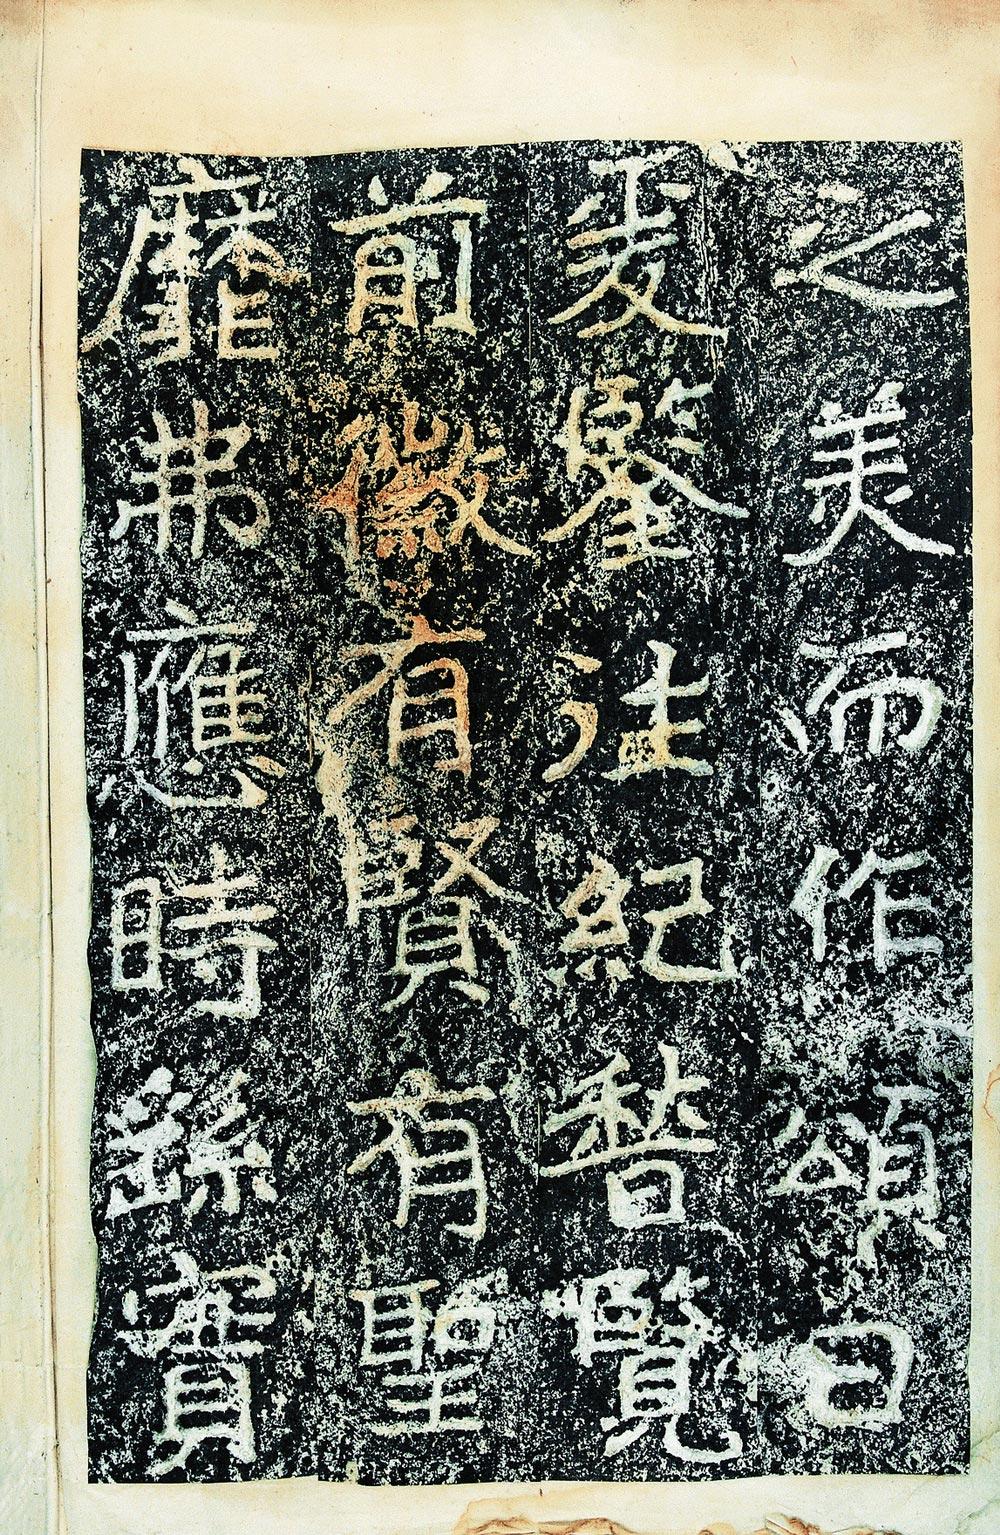 之美而作頌曰
爰鑒往紀稽覽
前徽有賢有聖
靡弗應時繇實